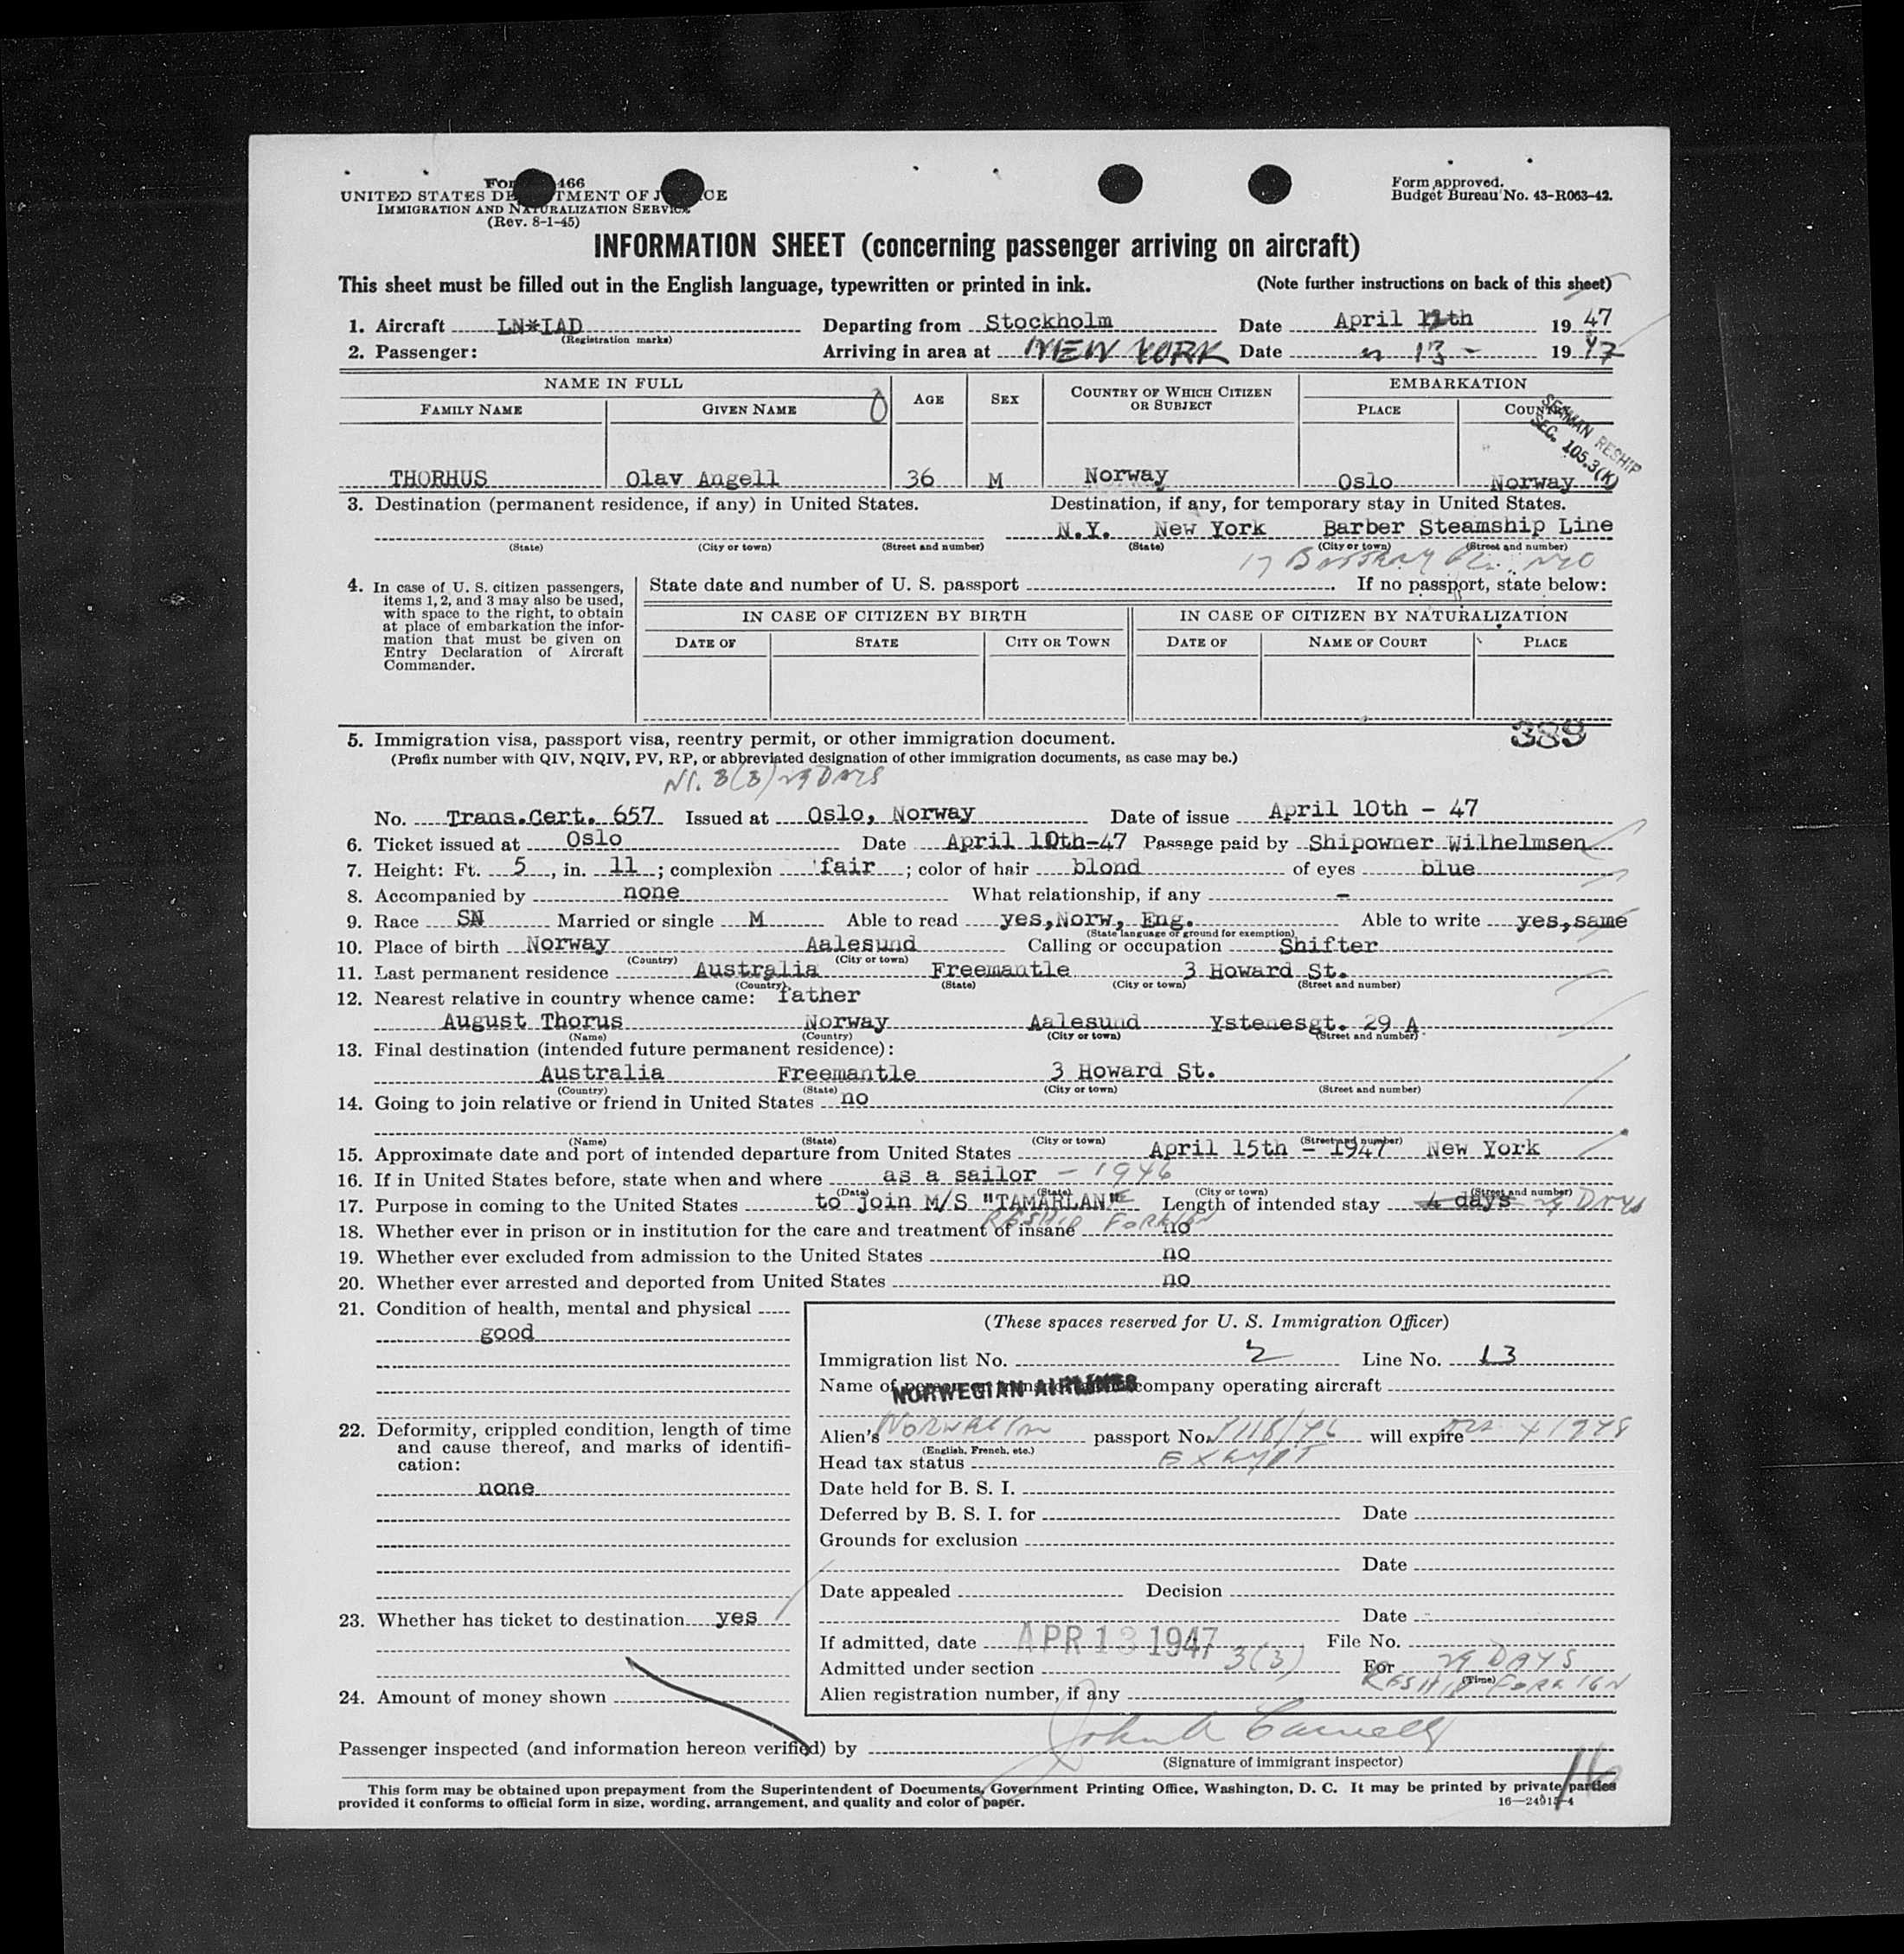 For 466
UNITED STATES DE TMENT OF J ICE
IMMIGRATION AND NATURALIZATION SERVICE
(Rev. 8-1-45)
Form approved.
Budget Bureau No. 43-R063-42.
INFORMATION SHEET (concerning passenger arriving on aircraft)
This sheet must be filled out in the English language, typewritten or printed in ink. (Note further instructions on back of this sheet)
1. Aircraft LN*IAD Departing from Stockholm Date April 12th 19 47
(Registration marks)
2. Passenger: Arriving in area at NEW YORK Date " 13 - 19 47
NAME IN FULL AGE SEX COUNTRY OF WHICH CITIZEN OR SUBJECT EMBARKATION
FAMILY NAME GIVEN NAME PLACE COUNTRY
SEAMAN RESHIP
SEC. 105.3(K)
THORHUS Olav Angell 36 M Norway Oslo Norway
3. Destination (permanent residence, if any) in United States. Destination, if any, for temporary stay in United States.
N.Y. New York Barber Steamship Line
(State) (City or town) (Street and number) (State) (City or town) (Street and number)
17 Battery
4. In case of U. S. citizen passengers, items 1, 2, and 3 may also be used, with space to the right, to obtain at place of embarkation the information that must be given on Entry Declaration of Aircraft Commander.
State date and number of U. S. passport . If no passport, state below:
IN CASE OF CITIZEN BY BIRTH IN CASE OF CITIZEN BY NATURALIZATION
DATE OF STATE CITY OR TOWN DATE OF NAME OF COURT PLACE
389
5. Immigration visa, passport visa, reentry permit, or other immigration document.
(Prefix number with QIV, NQIV, PV, RP, or abbreviated designation of other immigration documents, as case may be.)
3(3) 29 DAYS
No. Trans.Cert. 657 Issued at Oslo, Norway Date of issue April 10th - 47
6. Ticket issued at Oslo Date April 10th-47 Passage paid by Shipowner Wilhelmsen
7. Height: Ft. 5, in. 11; complexion fair; color of hair blond of eyes blue
8. Accompanied by none What relationship, if any -
9. Race SN Married or single M Able to read yes,Norw, Eng. Able to write yes,same
(State language or ground for exemption)
10. Place of birth Norway Aalesund Calling or occupation Shifter
(Country) (City or town)
11. Last permanent residence Australia Freemantle 3 Howard St.
(Country) (State) (City or town) (Street and number)
12. Nearest relative in country whence came: father
August Thorus Norway Aalesund Ystenesgt. 29 A
(Name) (Country) (City or town) (Street and number)
13. Final destination (intended future permanent residence):
Australia Freemantle 3 Howard St.
(Country) (State) (City or town) (Street and number)
14. Going to join relative or friend in United States no
(Name) (State) (City or town) (Street and number)
15. Approximate date and port of intended departure from United States April 15th - 1947 New York
16. If in United States before, state when and where as a sailor - 1946
(Date) (State) (City or town) (Street and number)
17. Purpose in coming to the United States to join M/S "TAMARLANE" Length of intended stay 4 days 29 DAYS
RESHIP FOREIGN
18. Whether ever in prison or in institution for the care and treatment of insane no
19. Whether ever excluded from admission to the United States no
20. Whether ever arrested and deported from United States no
21. Condition of health, mental and physical
good
22. Deformity, crippled condition, length of time and cause thereof, and marks of identification:
none
23. Whether has ticket to destination yes
24. Amount of money shown
(These spaces reserved for U. S. Immigration Officer)
Immigration list No. 2 Line No. 13
Name of person or company operating aircraft
NORWEGIAN AIRLINES
Alien's Norwegian passport No. will expire 4 1948
(English, French, etc.)
Head tax status EXEMPT
Date held for B. S. I.
Deferred by B. S. I. for Date
Grounds for exclusion
Date
Date appealed Decision
Date
If admitted, date APR 13 1947 File No.
Admitted under section 3(3) For 29 DAYS
(Time)
RESHIP FOREIGN
Alien registration number, if any
Passenger inspected (and information hereon verified) by
(Signature of immigrant inspector)
This form may be obtained upon prepayment from the Superintendent of Documents, Government Printing Office, Washington, D. C. It may be printed by private parties
provided it conforms to official form in size, wording, arrangement, and quality and color of paper. 16—24915-4